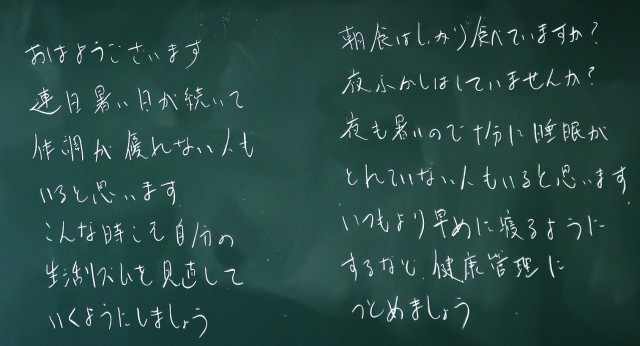 おはようございます
連日暑い日が続いて
体調が優れない人も
いると思います
こんな時こそ自分の
生活リズムを見直して
いくようにしましょう
朝食はしっかり食べていますか?
夜ふかしはしていませんか?
夜も暑いので十分に睡眠が
とれていない人もいると思います
いつもより早めに寝るように
するなど、健康管理に
つとめましょう